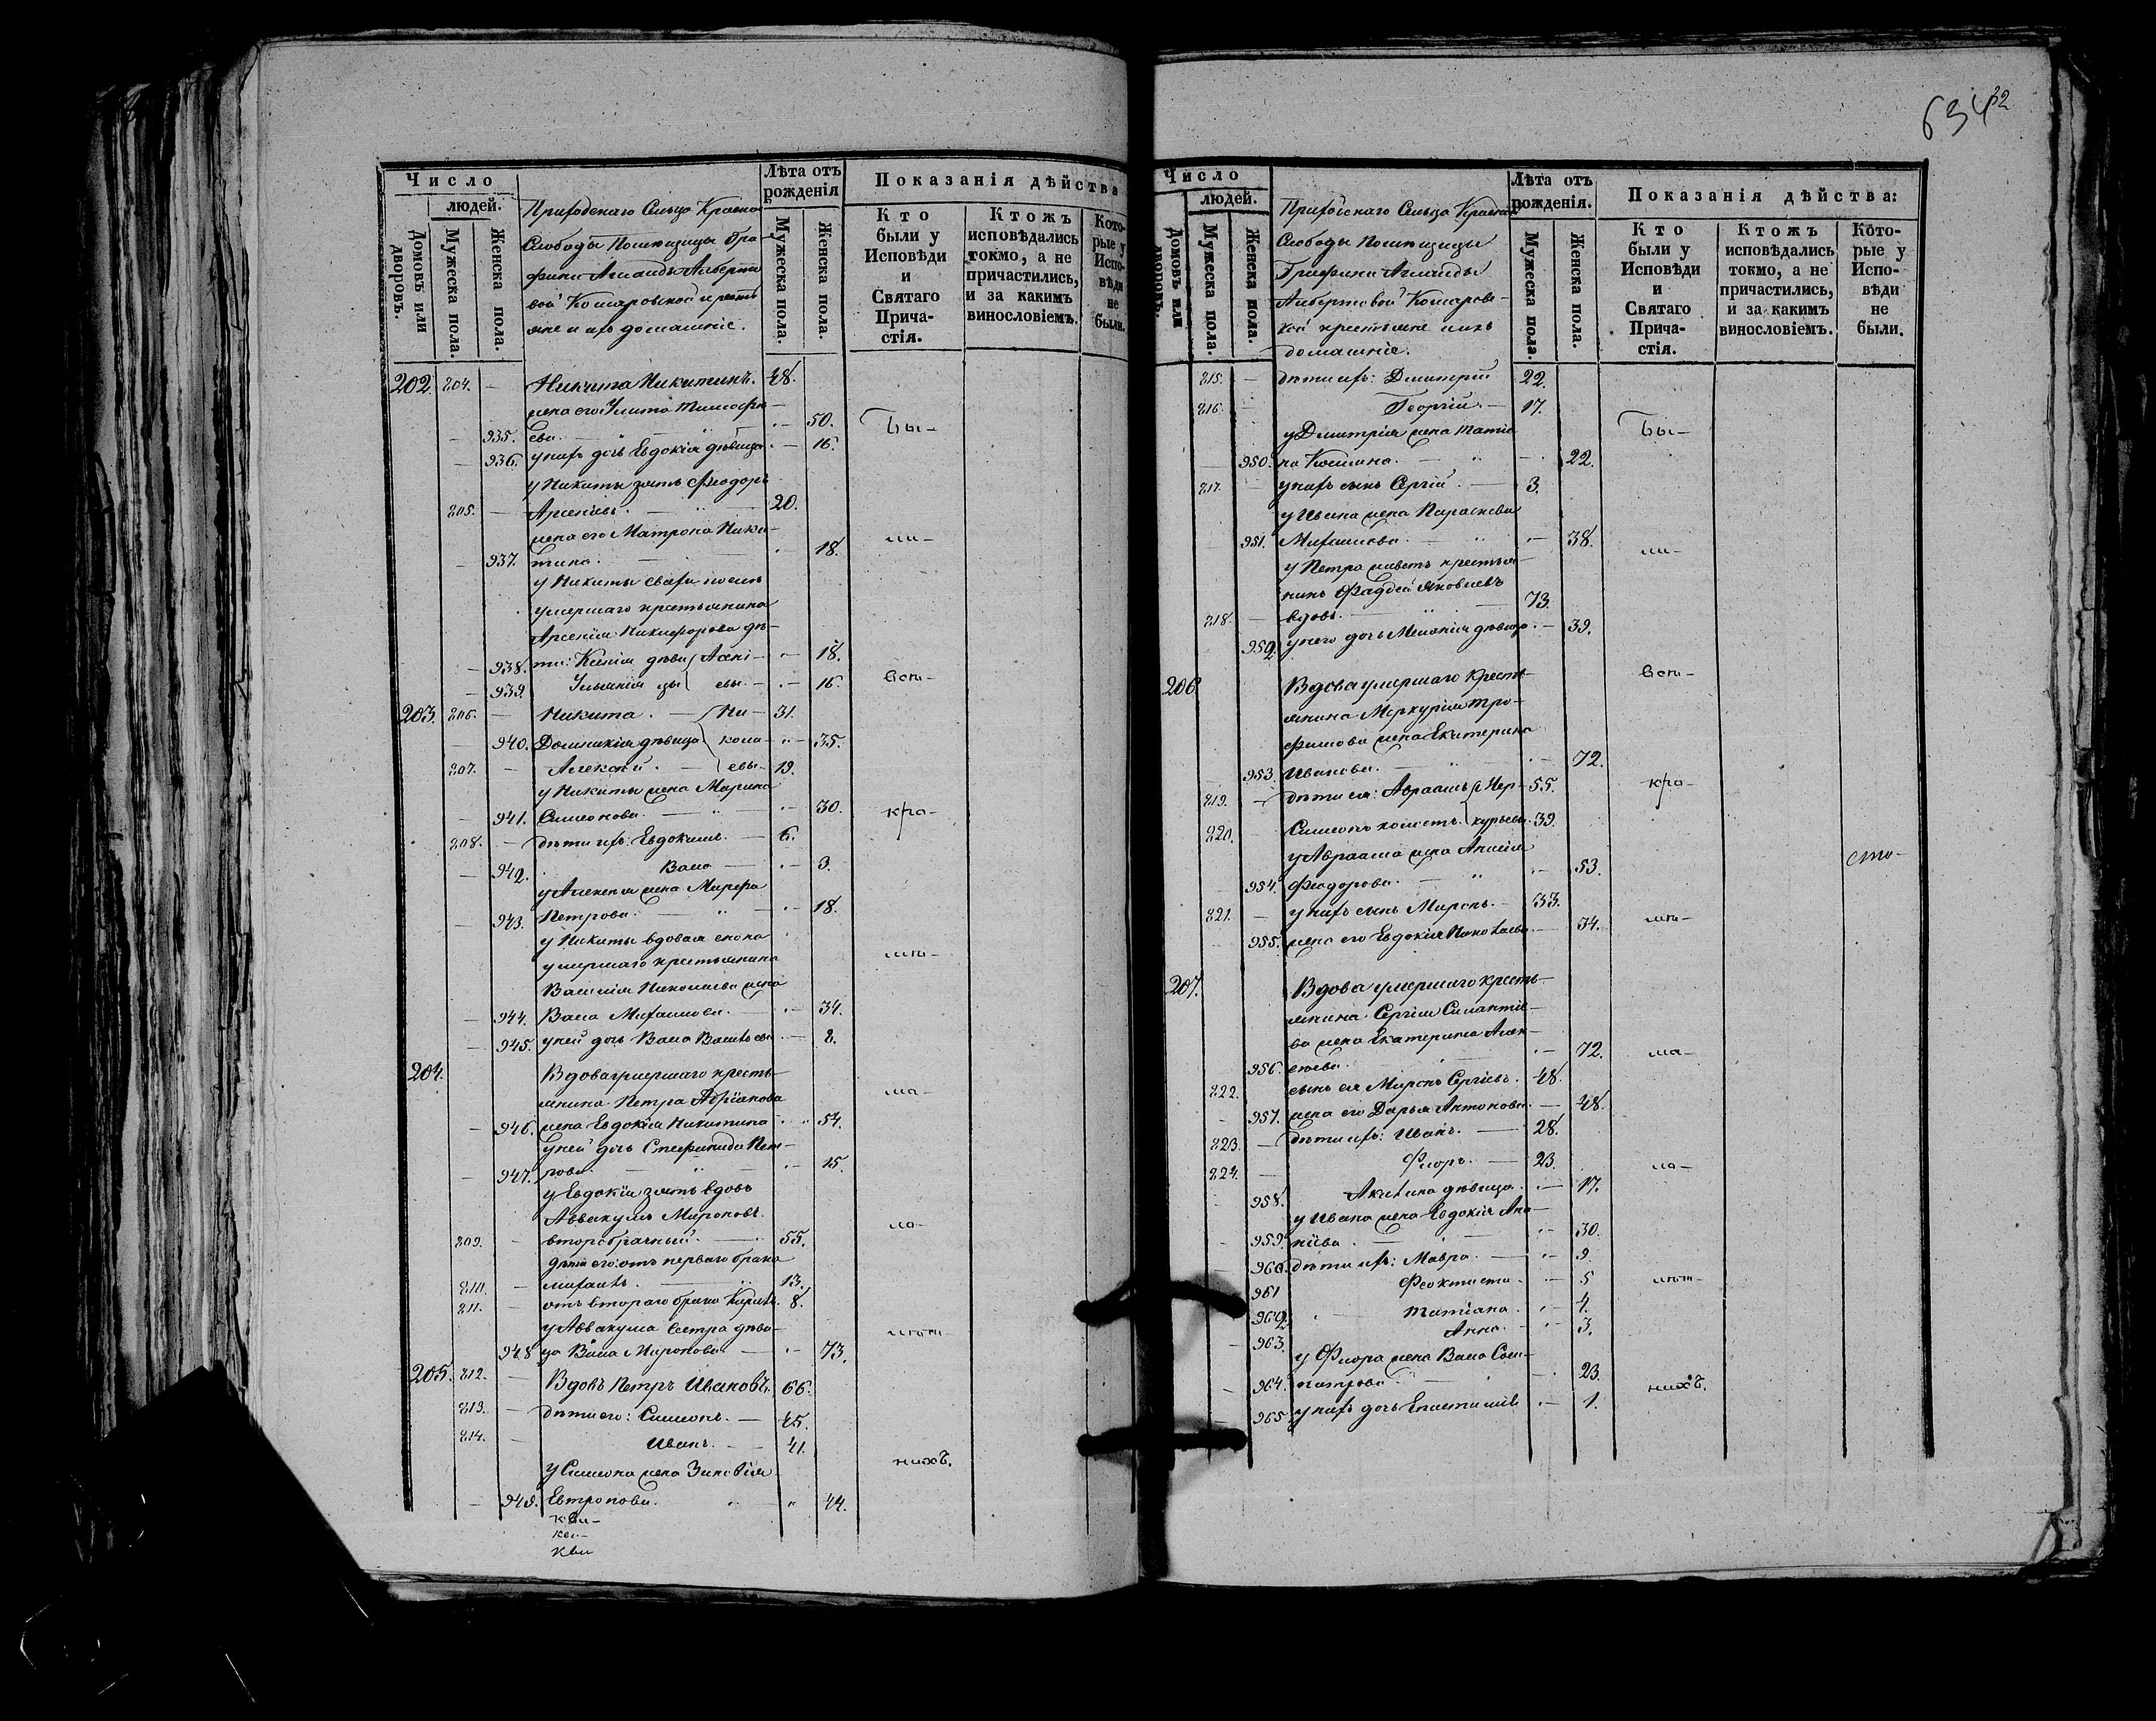 634 32
Число
людей.
Домовъ или дворовъ.
Мужеска пола.
Женска пола.
Приходскаго Сельца Красной
Слободы Помещицы Гра-
фини Аманды Альберто
вой Комаровской крестья
яне и ихъ домашніе.
Лѣта отъ рожденія
Мужеска пола.
Женска пола.
Показанія дѣйства
Кто были у Исповѣди и Святаго Причастія.
Ктожъ исповѣдались токмо, а не причастились, и за какимъ винословіемъ.
Которые у Исповѣди не были.
202. 804. — Никита Никитинъ. 48.
жена его Улита Тимофе-
935. ева. 50. Бы-
936. у нихъ дочь Евдокія дѣвица 16.
у Никиты зять Феодоръ
805. — Арсеніевъ. 20.
жена его Матрона Ники-
937. тина. 18. ли-
у Никиты
умершаго крестьянина
Арсенія Никифорова дѣ-
938. ти: Ксенія дѣви 18.
939. Ульянія цы евы 16. вси-
203. 806. — Никита. Ни- 31.
940. Домникія дѣвица кола 35.
807. — Алексій. евы 19.
у Никиты жена Марина
941. Симеонова. 30. кро-
808. — дѣти ихъ: Евдокимъ. 6.
942. Васа 3.
у Алексія жена Марфа
943. Петрова. 18.
у Никиты вдовая сноха
умершаго крестьянина
Василія Николаева жена
944. Васа Михайлова. 34.
945. у ней дочь Васа Васильева 8.
204. Вдова умершаго кресть-
янина Петра Адріанова ма-
946. жена Евдокія Никитина 54.
у ней дочь Стефанида Пет-
947. рова. 15.
у Евдокіи зять вдовъ
Аввакумъ Мироновъ
809. — второбрачный. 55. ло-
дѣти его: отъ перваго брака
810. — Михаилъ. 13.
811. — отъ втораго брака Кирилъ. 8.
у Аввакума сестра дѣви-
948 ца Васа Миронова 73.
205. 812. — Вдовъ Петръ Ивановъ. 66.
813. — дѣти его: Симеонъ. 45.
814. — Иванъ. 41.
у Симеона жена Зиновія нихъ.
949. Евтропова. 44.
Число
людей.
Домовъ или дворовъ.
Мужеска пола.
Женска пола.
Приходскаго Сельца Красной
Слободы Помещицы
Графини Аманды
Альбертовой Комаровс-
кой крестьяне и ихъ
домашніе.
Лѣта отъ рожденія.
Мужеска пола.
Женска пола.
Показанія дѣйства:
Кто были у Исповѣди и Святаго Причастія.
Ктожъ исповѣдались токмо, а не причастились, и за какимъ винословіемъ.
Которые у Исповѣди не были.
815. — дѣти ихъ: Димитрій 22.
816. — Георгій. 17.
у Димитрія жена Татіа Бы-
950. на Косьмина. 22.
817. — у нихъ сынъ Сергій. 3.
у Ивана жена Параскева
951. Михайлова. 38. ли-
у Петра живетъ крестья-
нинъ Фаддей Яковлевъ
818. — вдовъ. 73.
952. у него дочь Меланія дѣвица. 39.
206. Вдова умершаго кресть- вси-
янина Меркурія Тро-
фимова жена Екатерина
953. Иванова. 72.
819. — дѣти ея: Авраамъ Мер- 55. кро-
820. Симеонъ холостъ. курьевы. 39.
у Авраама жена Анисія
954. Феодорова. 53.
821. — у нихъ сынъ Миронъ. 33.
955. жена его Евдокія Николаева 34.
207. Вдова умершаго кресть-
янина Сергія Силантіе-
ва жена Екатерина Алек-
956. сѣева. 72. ма-
822. сынъ ея Миронъ Сергіевъ. 48.
957. жена его Дарья Антонова. 48.
823. — дѣти ихъ: Иванъ. 28.
824. — Флоръ. 23. ло-
958. Акилина дѣвица. 17.
у Ивана жена Евдокія Ана-
959. ніева. 30.
960. дѣти ихъ: Мавра. 9.
961 Феоктиста. 5
962 Татіана. 4.
963. Анна. 3.
у Флора жена Васа Соси-
964. патрова 23. нихъ.
965. у нихъ дочь 1.